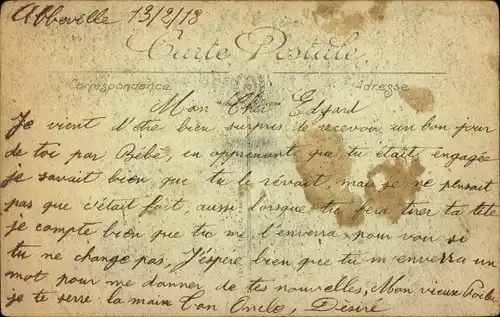 Abbeville 13/2/18
Carte Postale
Correspondance
Adresse
Mon Cher Edgard
Je vient d'être bien surpris de recevoir un bon jour
de toi par Bébé, en apprenant que tu était engagée
je savait bien que tu le rêvait, mais je ne plusait
pas que c'était fait, aussi lorsque tu feras tirer ta tête
je compte bien que tu me l'enverra, pour voir si
tu ne change pas, J'éspère bien que tu m'enverra un
mot pour me donner de tes nouvelles, Mon vieux Poilu
je te serre la main Ton Oncle, Désiré